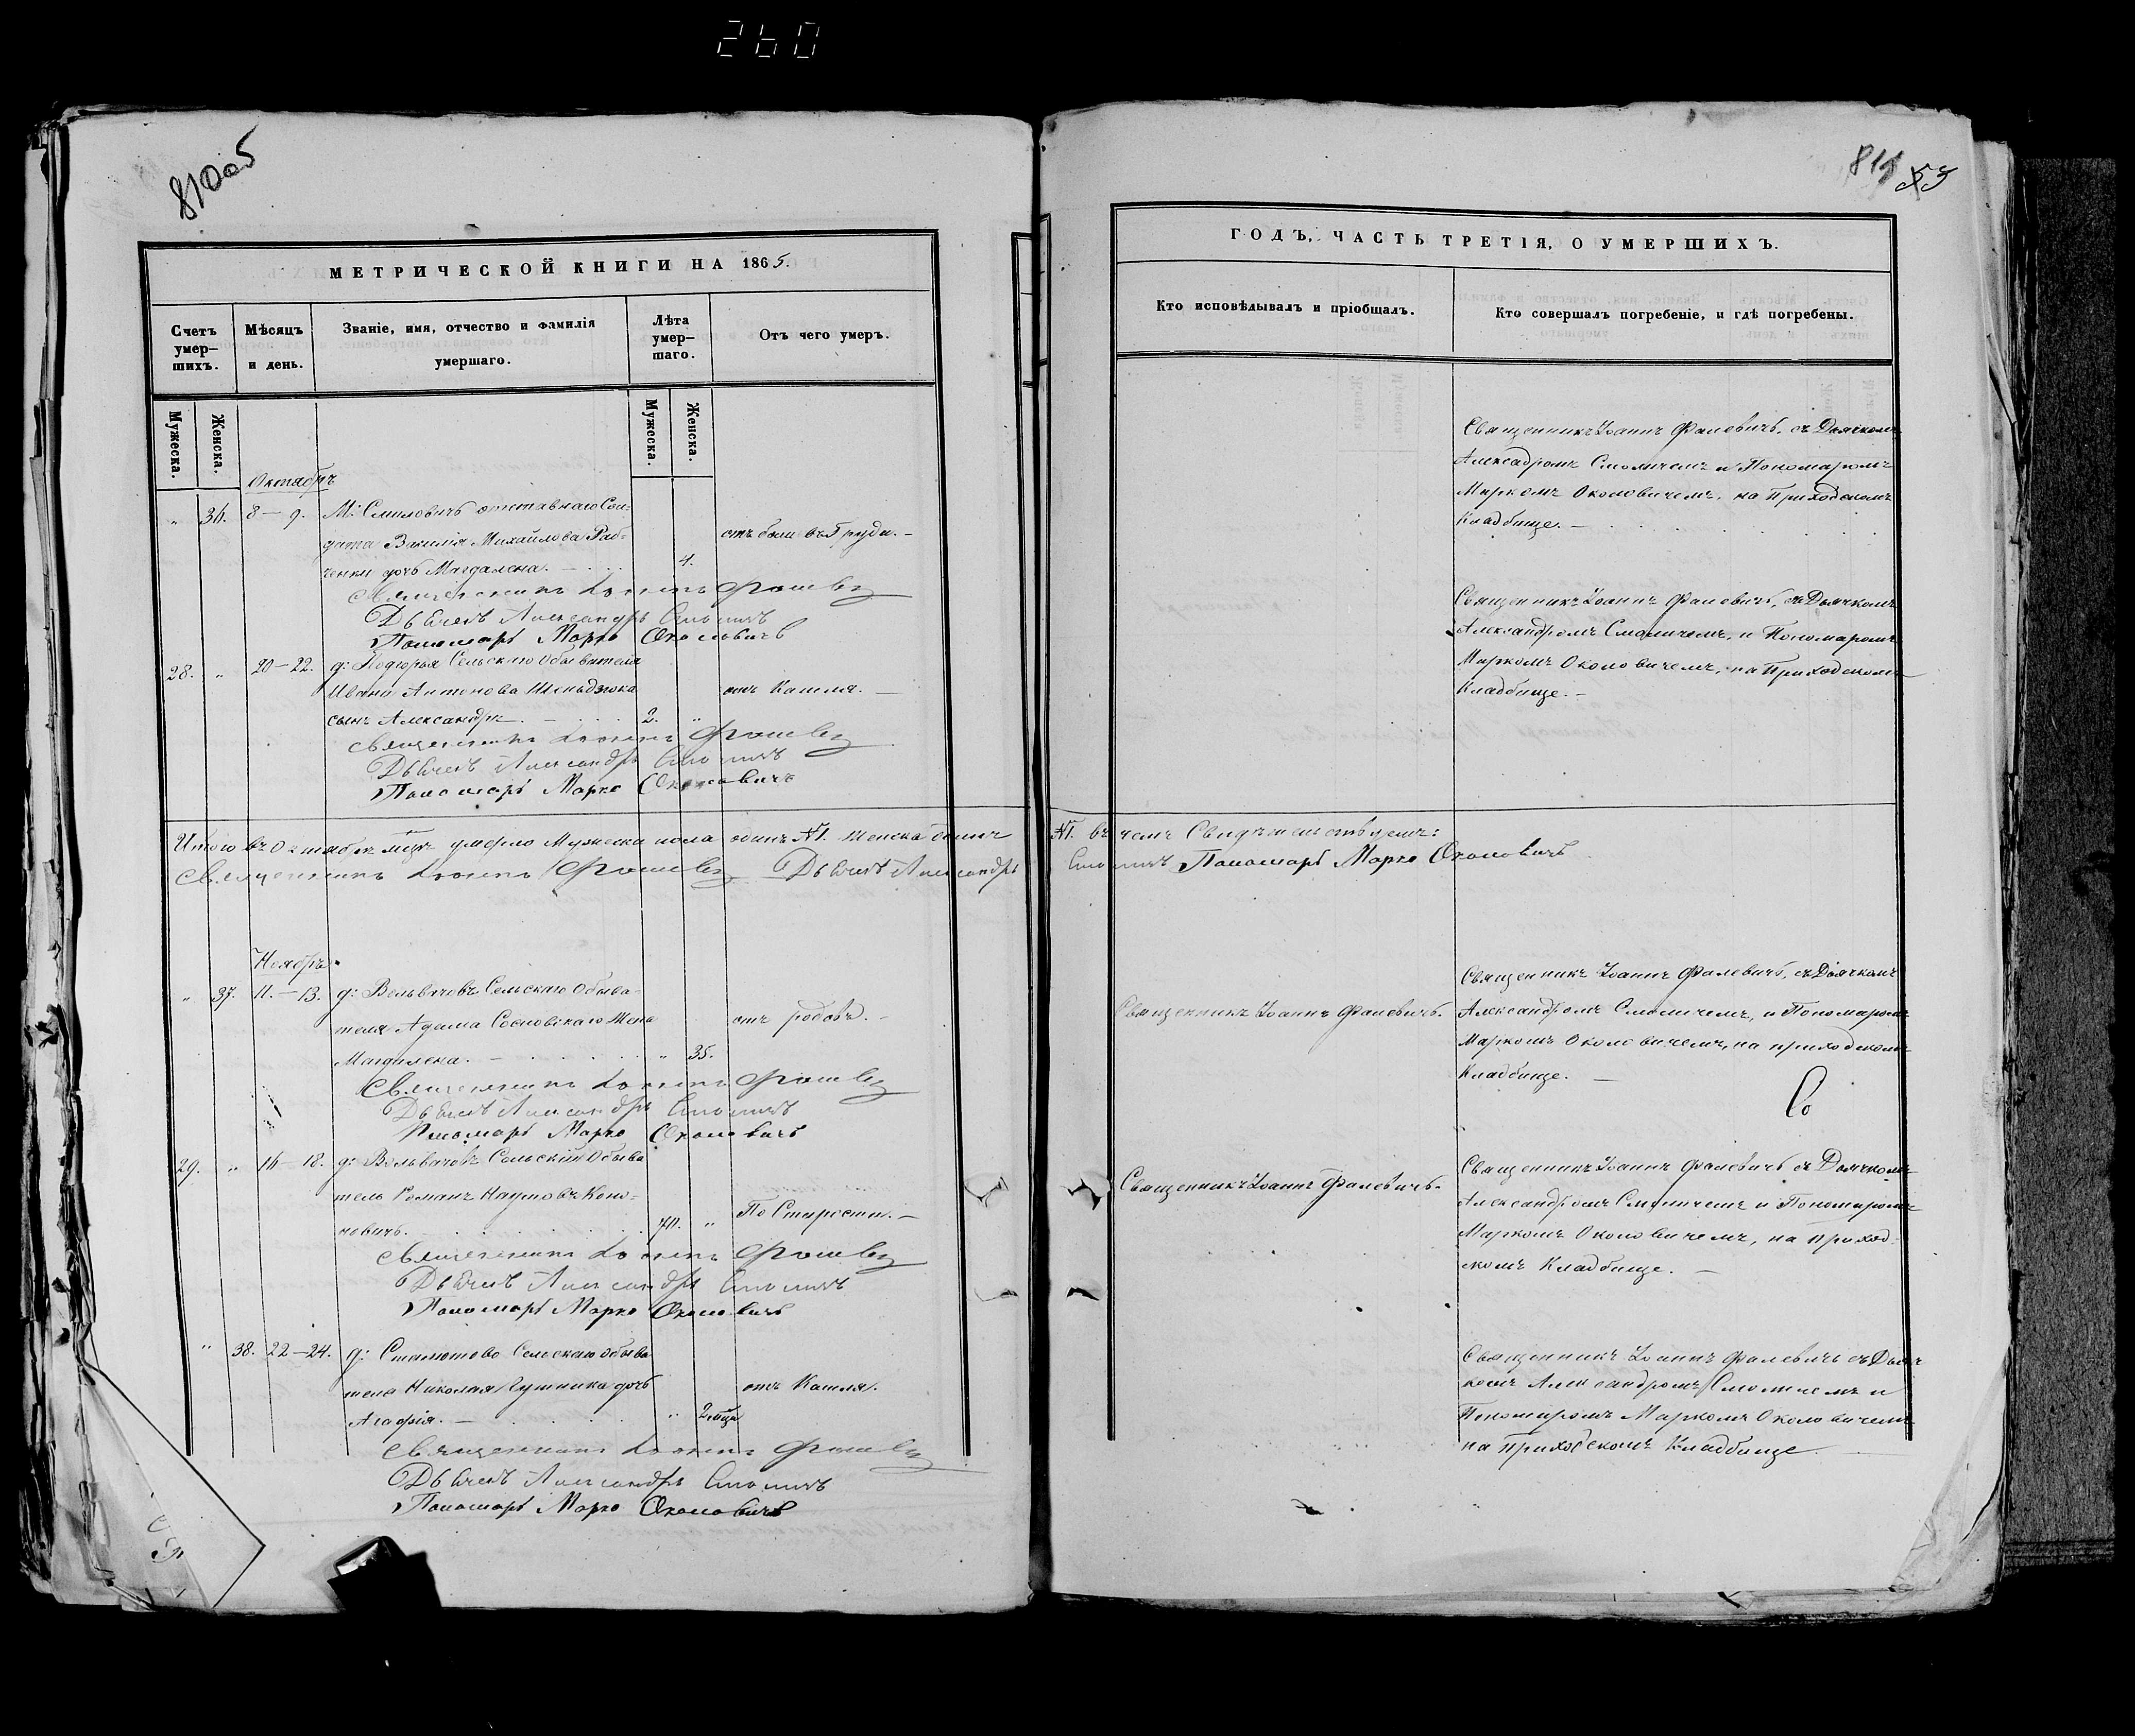 260
810об
МЕТРИЧЕСКОЙ КНИГИ НА 1865.
Счетъ умер-шихъ.
Мѣсяцъ и день.
Званіе, имя, отчество и фамилія умершаго.
Лѣта умер-шаго.
Отъ чего умеръ.
Мужеска.
Женска.
Мужеска.
Женска.
Октябрь
" 36. 8 — 9. М: Смиловичъ отставнаго Сол-
дата Василія Михайлова Раб-
отъ боли въ Груди. —
ченки дочь Магдалена. — 4.
Священникъ Іоаннъ Фалевичъ
Дьячекъ Александръ Смоличъ
Пономарь Марко Околовичъ
28. " 20 — 22. д: Подюрья Сельскаго Обывателя
Ивана Антонова сына отъ Кашля. —
сынъ Александръ. — 2. "
Священникъ Іоаннъ Фалевичъ
Дьячекъ Александръ Смоличъ
Пономарь Марко Околовичъ
Итого въ Октябрѣ мцѣ умерло Мужеска пола одинъ №1. Женска одинъ
Священникъ Іоаннъ Фалевичъ Дьячекъ Александръ
Ноябрь
" 37. 11. — 13. д: Вельвичовъ Сельскаго Обыва-
теля Адама Сосновскаго Жена отъ родовъ. —
Магдалена. — " 35.
Священникъ Іоаннъ Фалевичъ
Дьячекъ Александръ Смоличъ
Пономарь Марко Околовичъ
29. " 16 — 18. д: Сельскій Обыва
тель Романъ Наумовъ Коно-
новичъ. " По Старости. —
Священникъ Іоаннъ Фалевичъ
Дьячекъ Александръ Смоличъ
Пономарь Марко Околовичъ
" 38. 22 — 24. д: Сельскаго Обыва
теля Николая дочь отъ Кашля.
Агафія. — " 2. мца
Священникъ Іоаннъ Фалевичъ
Дьячекъ Александръ Смоличъ
Пономарь Марко Околовичъ
811 53
ГОДЪ, ЧАСТЬ ТРЕТІЯ, О УМЕРШИХЪ.
Кто исповѣдывалъ и пріобщалъ.
Кто совершалъ погребеніе, и гдѣ погребены.
Священникъ Іоаннъ Фалевичъ, съ Дьячкомъ
Алексадромъ Смоличемъ и Пономаромъ
Маркомъ Околовичемъ, на Приходскомъ
Кладбище. —
Священникъ Іоаннъ Фалевичъ, съ Дьячкомъ
Александромъ Смоличемъ, и Пономаромъ
Маркомъ Околовичемъ, на Приходскомъ
Кладбище. —
№1. въ чемъ Свидѣтельствуемъ:
Смоличъ Пономарь Марко Околовичъ
Священникъ Іоаннъ Фалевичъ, съ Дьячкомъ
Священникъ Іоаннъ Фалевичъ. Александромъ Смоличемъ, и Пономаромъ
Маркомъ Околовичемъ, на приходскомъ
Кладбище. —
Со
Священникъ Іоаннъ Фалевичъ съ Дьячкомъ
Священникъ Іоаннъ Фалевичъ. Александромъ Смоличемъ и Пономаромъ
Маркомъ Околовичемъ, на приход-
скомъ Кладбище. —
Священникъ Іоаннъ Фалевичъ съ Дьяч
комъ Александромъ Смоличемъ и
Пономаромъ Маркомъ Околовичемъ
на Приходскомъ Кладбище